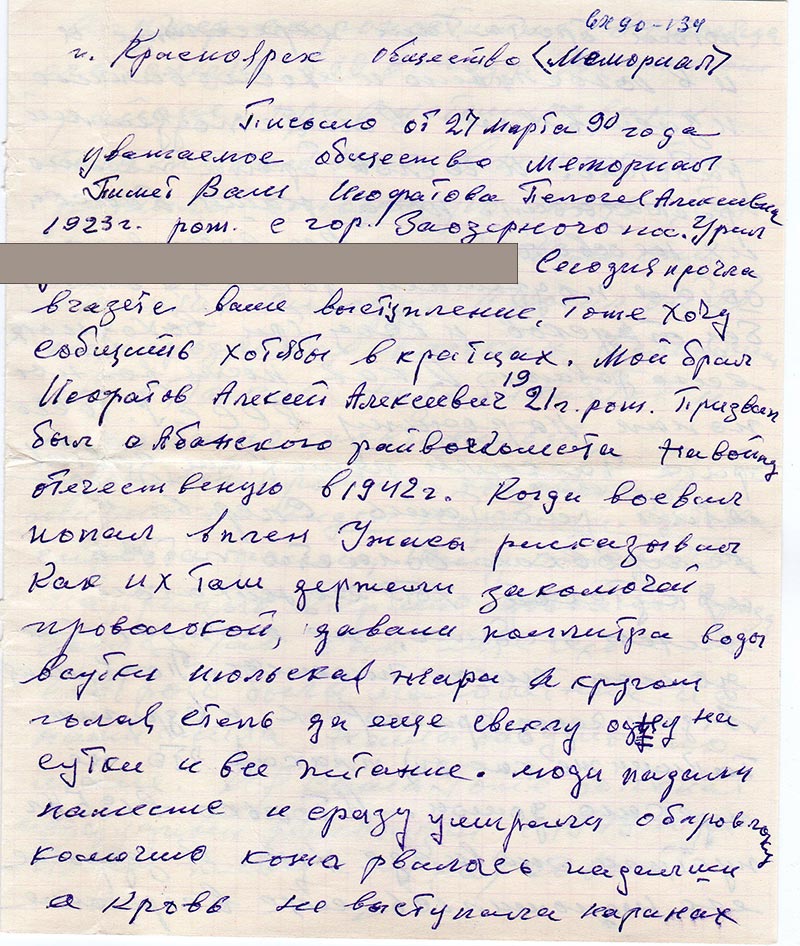 вх 90-134
г. Красноярск общество (Мемориал)
Письмо от 27 марта 90 года
уважаемое общество мемориал
Пишет Вам Алексеевна
1923 г. рож. с гор. Заозерного пос. Урал
Сегодня прочла
в газете ваше выступление, Тоже хочу
сообщить хотябы в кратцах. Мой брат
Алексей Алексеевич 1921 г. рож. Призван
был с Абанского райвоенкомата на войну
отечественную в 1942 г. Когда воевал
попал в плен Ужасы рассказывал
Как их там держали за колючей
проволокой, давали поллитра воды
в сутки июльская жара а кругом
голая степь да еще свеклу одну на
сутки и все питание. люди падали
на месте и сразу умирали о
колючию кожа рвалась на
а Кровь не выступала на ранах